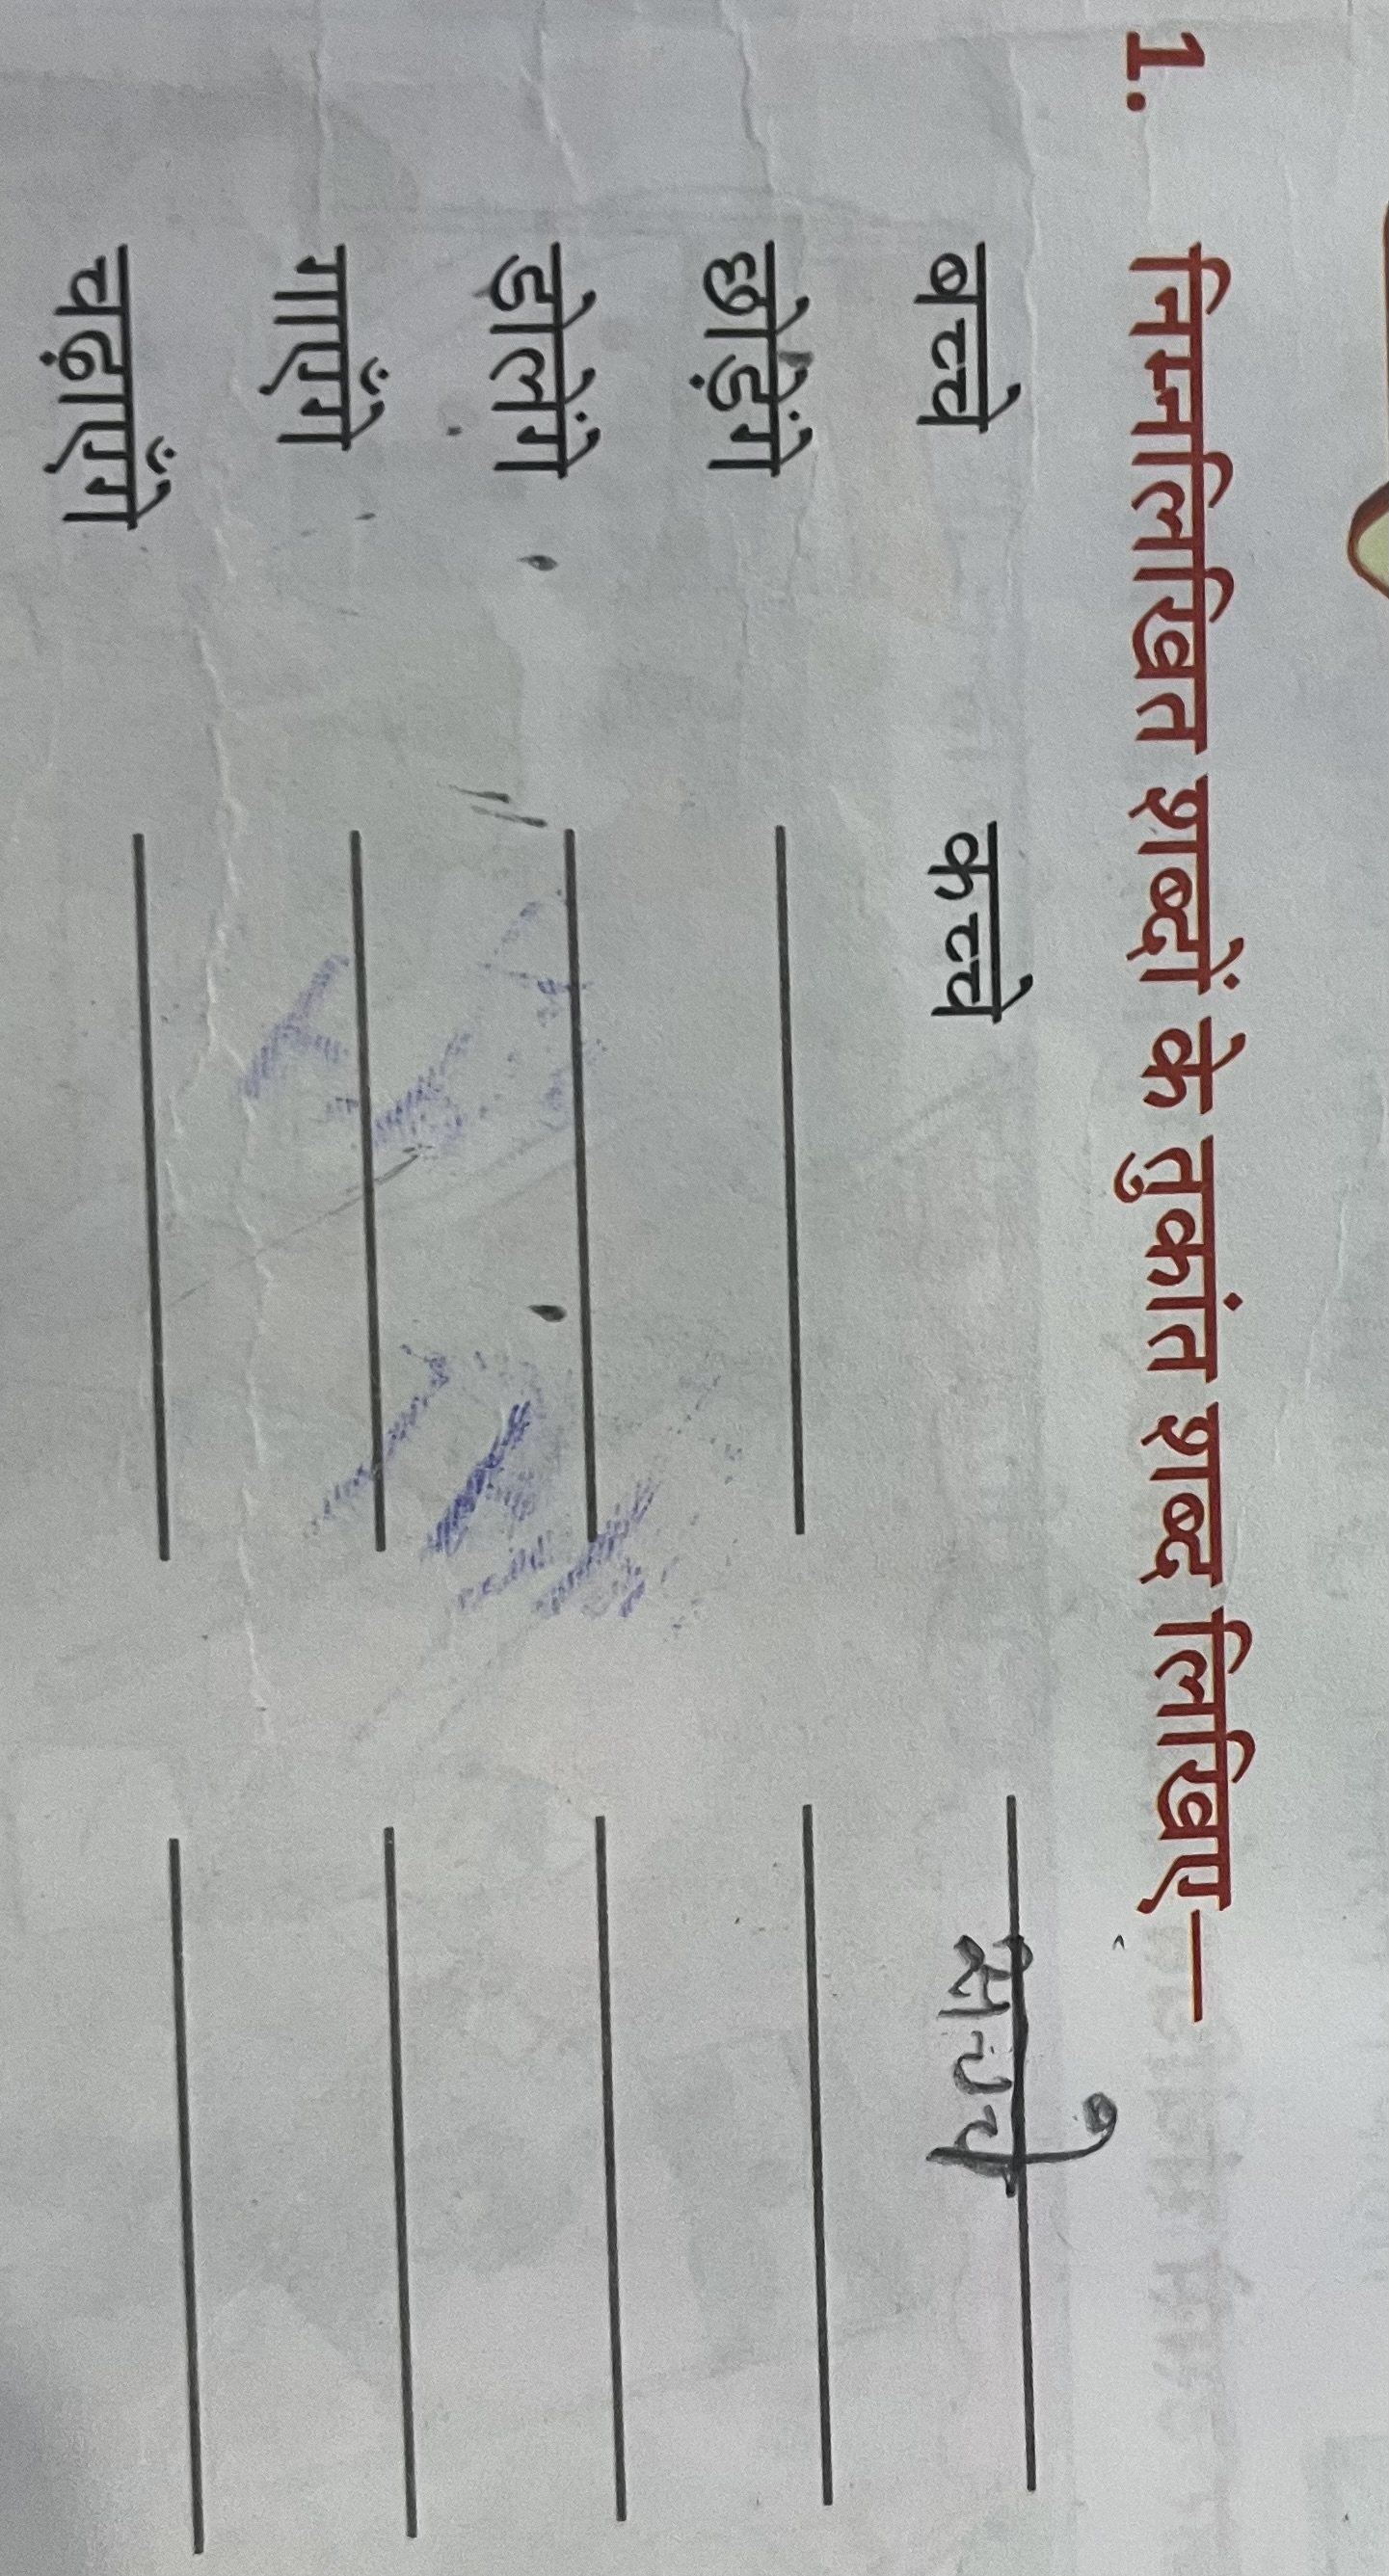 1. निम्नलिखित शब्दों के तुकांत शब्द लिखिए—
बच्चे कच्चे सच्चे
छोड़ेंगे
डोलेंगे
गाएँगे
चढ़ाएँगे